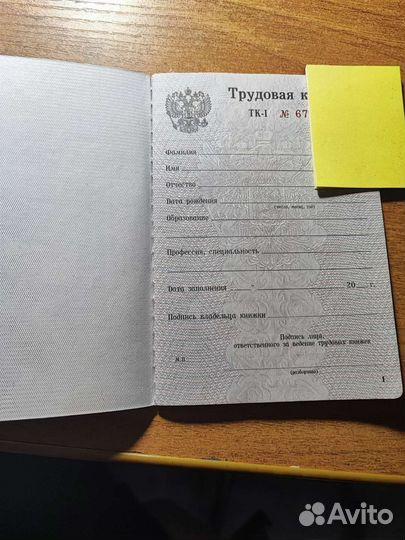 Трудовая к
ТК-I № 67
Фамилия
Имя
Отчество
Дата рождения
(число, месяц, год)
Образование
Профессия, специальность
Дата заполнения 20 г.
Подпись владельца книжки
Подпись лица,
ответственного за ведение трудовых книжек
М.П
(разборчиво)
1
Avito